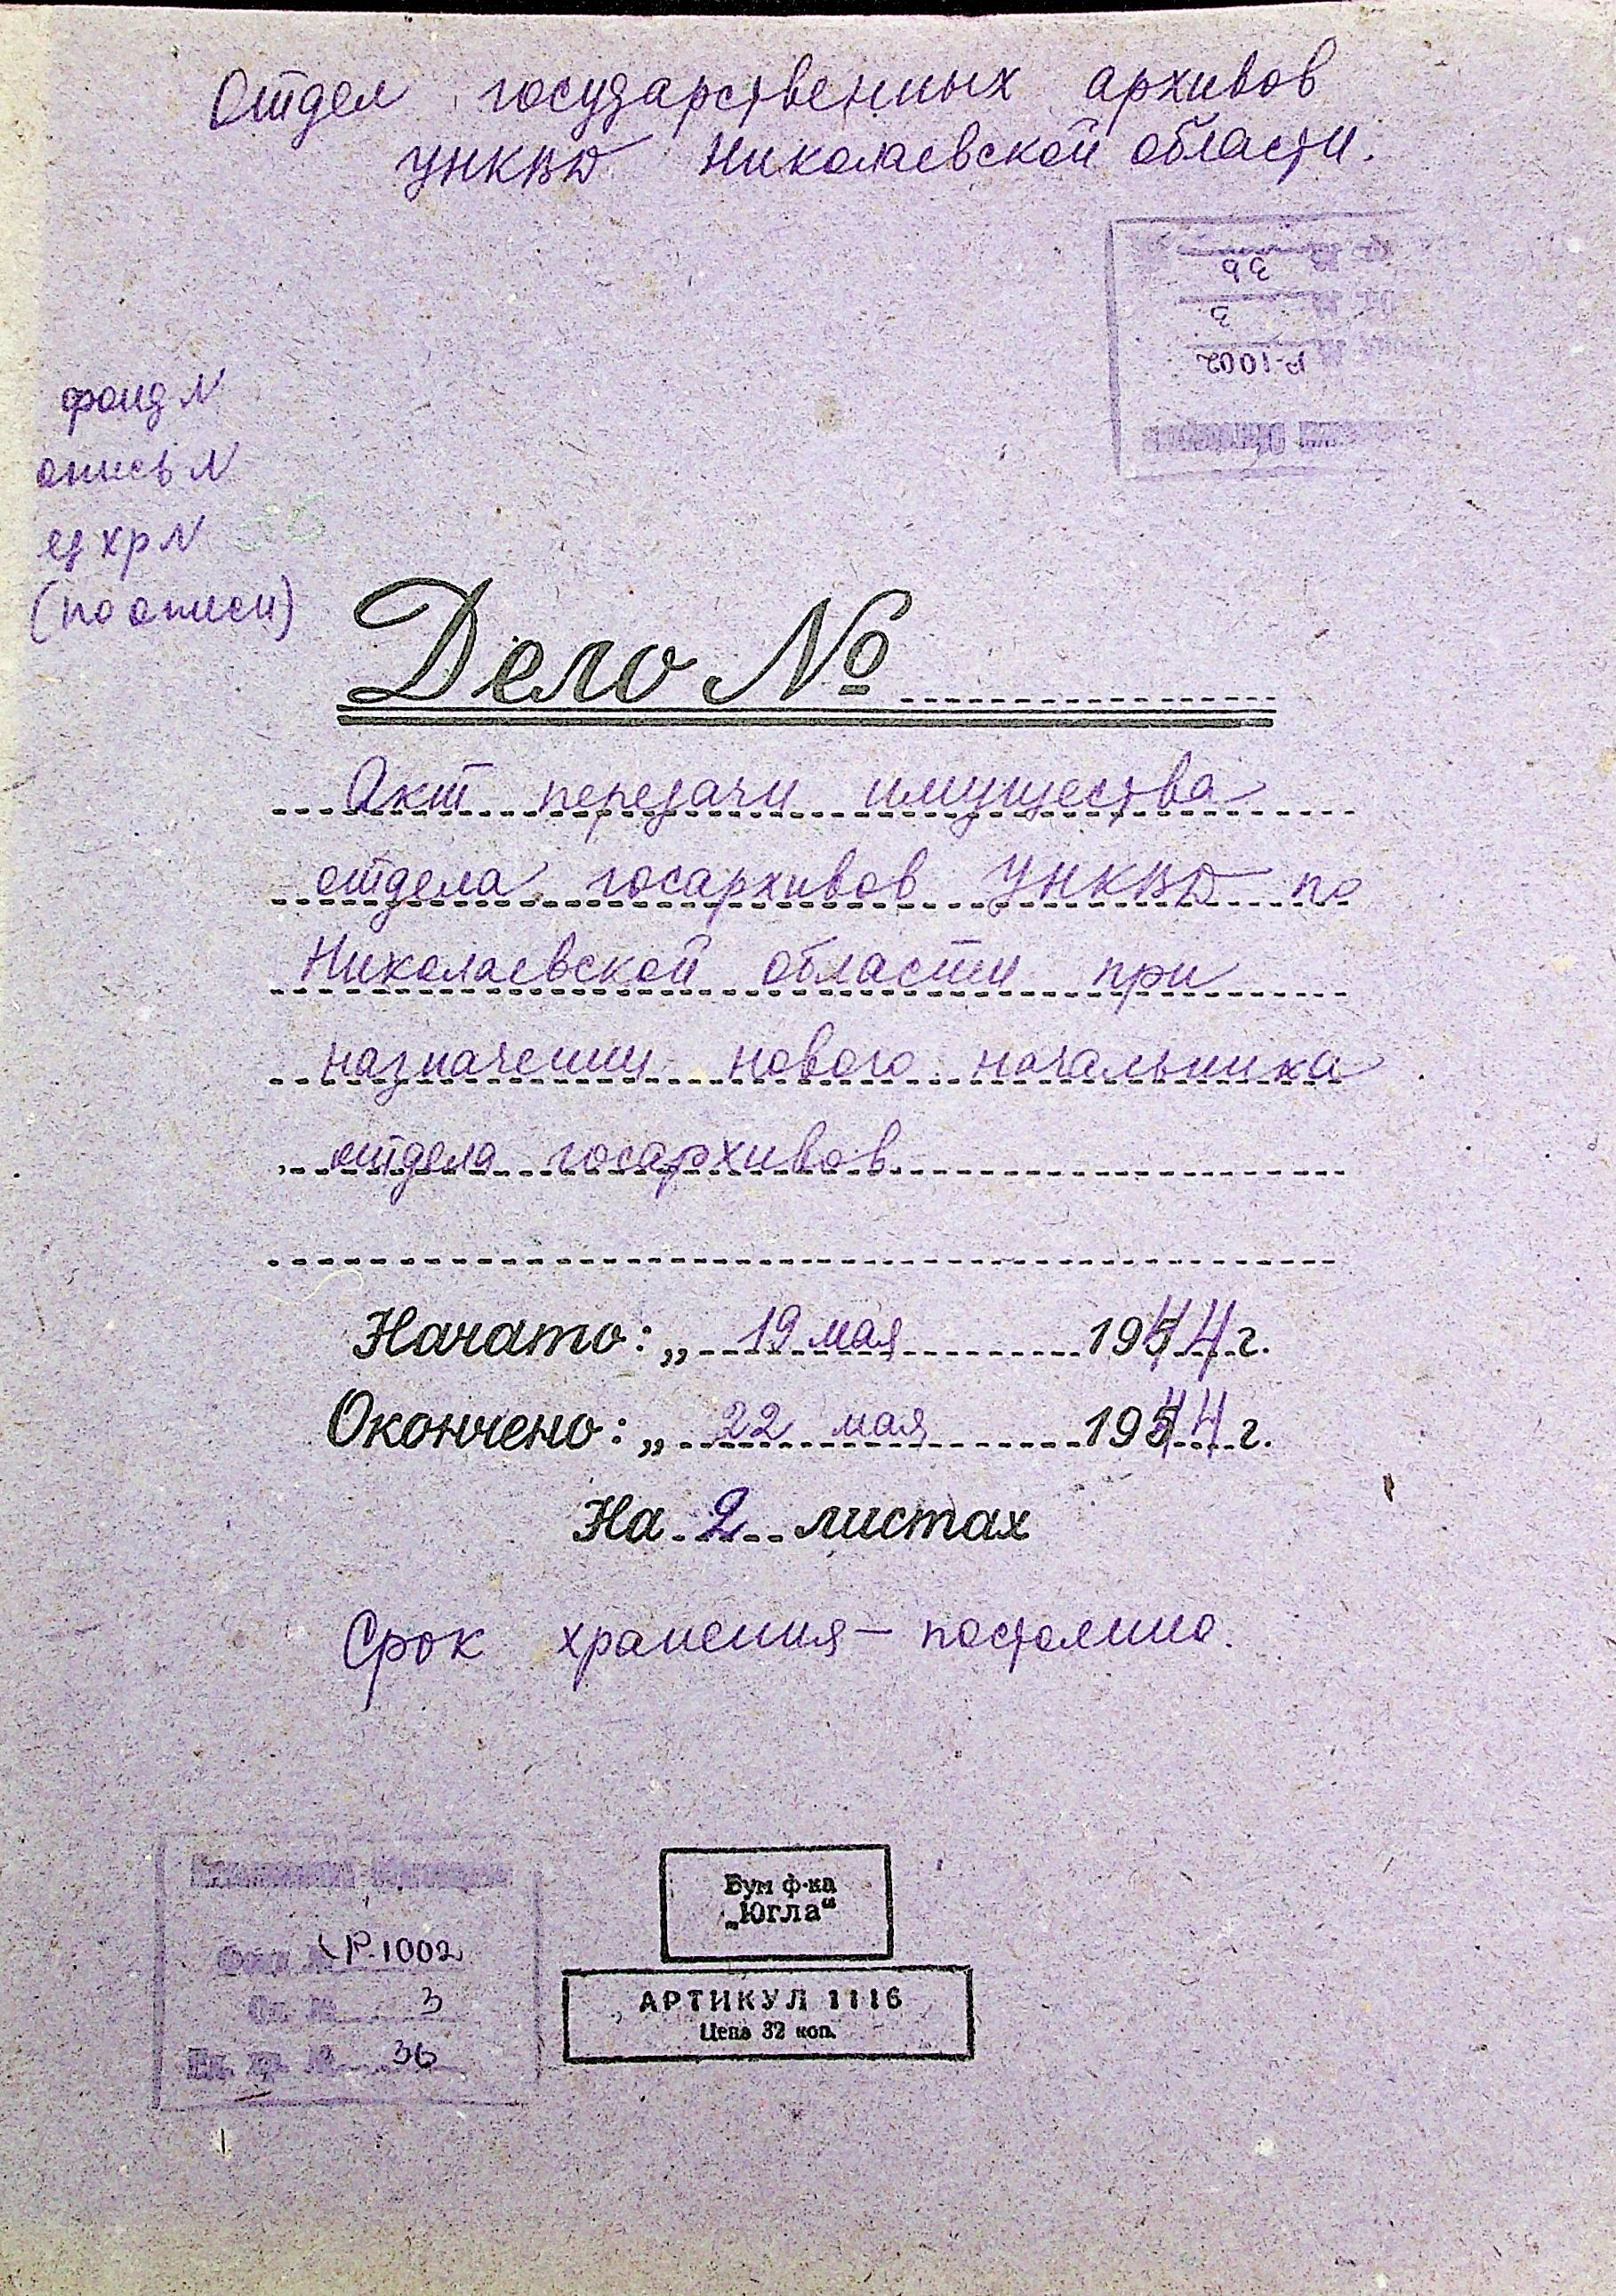 Отдел государственных архивов
УНКВД Николаевской области.
Р-1002
3
36
фонд N
опись N
ед хр N 36
(по описи)
Дело №
Акт передачи имущества
отдела госархивов УНКВД по
Николаевской области при
назначении нового начальника
отдела госархивов
Начато: „ 19 мая 1944 г.
Окончено: „ 22 мая 1944 г.
На 2 листах
Срок хранения – постоянно.
Бум ф-ка
„Югла“
АРТИКУЛ 1116
Цена 32 коп.
Фонд № Р-1002
Оп. № 3
Ед. хр. № 36